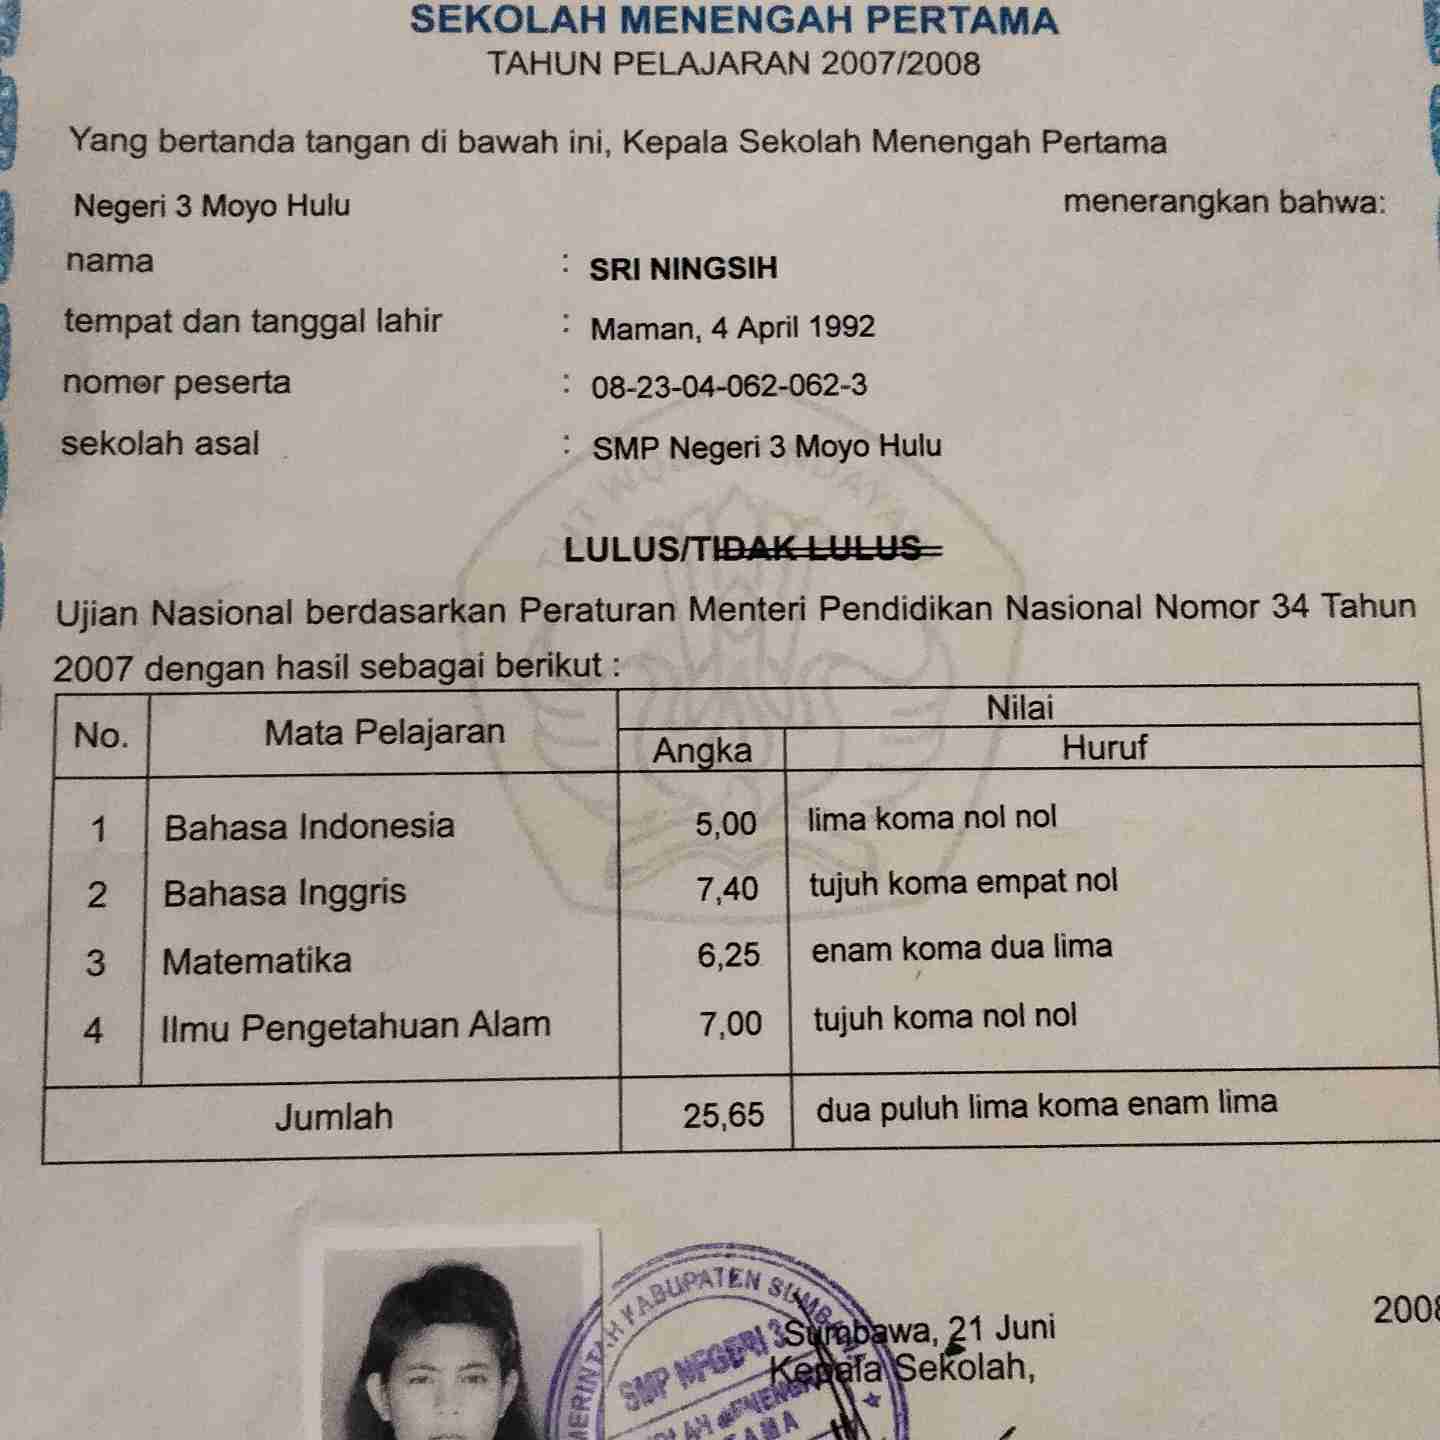 SEKOLAH MENENGAH PERTAMA
TAHUN PELAJARAN 2007/2008
Yang bertanda tangan di bawah ini, Kepala Sekolah Menengah Pertama
Negeri 3 Moyo Hulu menerangkan bahwa:
nama : SRI NINGSIH
tempat dan tanggal lahir : Maman, 4 April 1992
nomor peserta : 08-23-04-062-062-3
sekolah asal : SMP Negeri 3 Moyo Hulu
LULUS/TIDAK LULUS
Ujian Nasional berdasarkan Peraturan Menteri Pendidikan Nasional Nomor 34 Tahun
2007 dengan hasil sebagai berikut :
No. Mata Pelajaran Nilai
Angka Huruf
1 Bahasa Indonesia 5,00 lima koma nol nol
2 Bahasa Inggris 7,40 tujuh koma empat nol
3 Matematika 6,25 enam koma dua lima
4 Ilmu Pengetahuan Alam 7,00 tujuh koma nol nol
Jumlah 25,65 dua puluh lima koma enam lima
KABUPATEN
SMP NEGERI 3
Sumbawa, 21 Juni 2008
Kepala Sekolah,